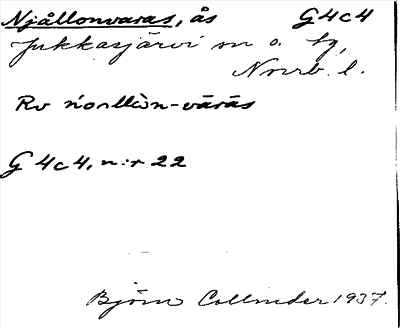 Njållonvaras, ås G4c4
Jukkasjärvi sn o. tg,
Norrb. l.
Rv
G4c4, n:r 22
Björn Collinder 1937.